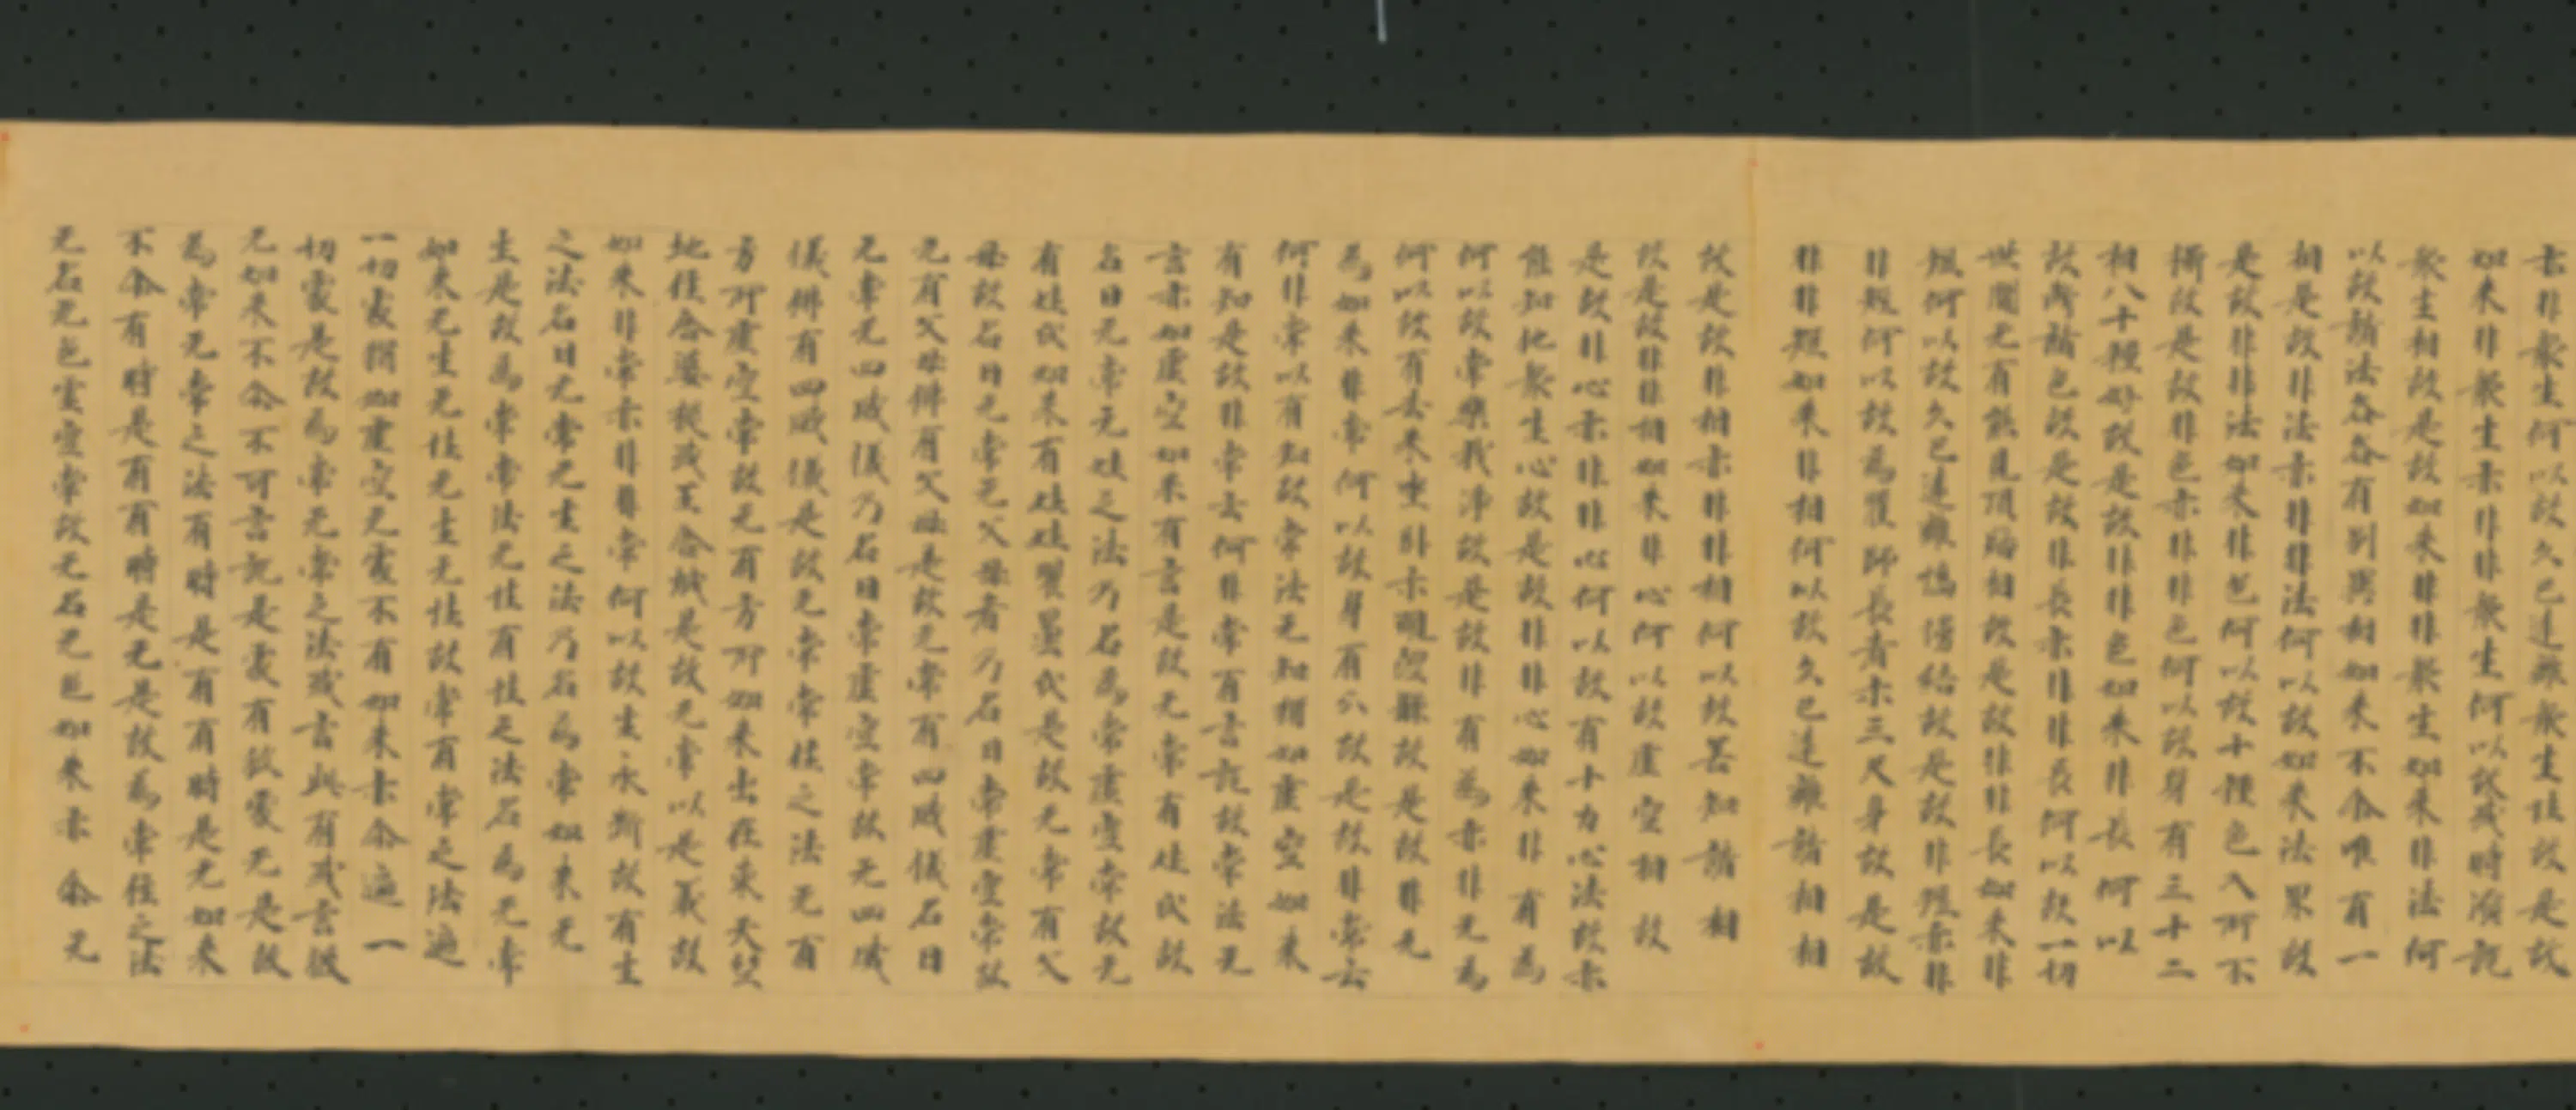 去非衆生何以故久已遠離衆生性故是故
如来非衆生亦非非衆生何以故或時演説
衆生相故是故如来非非衆生如来非法何
以故諸法各各有別異相如来不尒唯有一
相是故非法亦非非法何以故如来法界故
是故非非法如来非色何以故十種色入所不
攝故是故非色亦非非色何以故身有三十二
相八十種好故是故非非色如来非長何以
故断諸色故是故非長亦非非長何以故一切
世間无有能見頂髻相故是故非非長如来非
短何以故久已遠離憍慢結故是故非短亦非
非短何以故為瞿師長者示三尺身故是故
非非短如来非相何以故久已遠離諸相相
故是故非相亦非非相何以故善知諸相
故是故非非相如来非心何以故虚空相故
是故非心亦非非心何以故有十力心法故亦
能知他衆生心故是故非非心如来非有為
何以故常樂我淨故是故非有為亦非无為
何以故有去来坐卧示現涅槃故是故非无
為如来非常何以故身有分故是故非常云
何非常以有知故常法无知猶如虚空如来
有知是故非常云何非常有言説故常法无
言亦如虚空如来有言是故无常有姓氏故
名曰无常无姓之法乃名為常虚空常故无
有姓氏如来有姓姓瞿曇氏是故无常有父
母故名曰无常无父母者乃名曰常虚空常故
无有父母佛有父母是故无常有四威儀名曰
无常无四威儀乃名曰常虚空常故无四威
儀佛有四威儀是故无常常住之法无有
方所虚空常故无有方所如来出在東天竺
地住舍婆提或王舍城是故无常以是義故
如来非常亦非非常何以故生永断故有生
之法名曰无常无生之法乃名為常如来无
生是故為常常法无性有性之法名為无常
如来无生无性无生无性故常有常之法遍
一切處猶如虚空无處不有如来亦尒遍一
切處是故為常无常之法或言此有或言彼
无如来不尒不可言説是處有彼處无是故
為常无常之法有時是有有時是无如来
不尒有時是有有時是无是故為常常住之法
无名无色虚空常故无名无色如来亦尒无